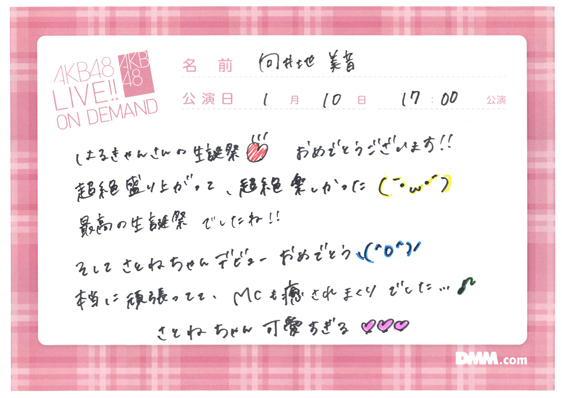 AKB48
LIVE!!
ON DEMAND
AKB
48
名前 向井地 美音
公演日 1月10日 17:00 公演
はるきゃんさんの生誕祭 おめでとうございます!!
超絶盛り上がって、超絶楽しかった(¯・ω・¯)
最高の生誕祭でしたね!!
そして さとねちゃんデビュー おめでとう\(^o^)/
本当に頑張ってて、MCも癒されまくりでした…♪
さとねちゃん可愛すぎる♡♡♡
DMM.com